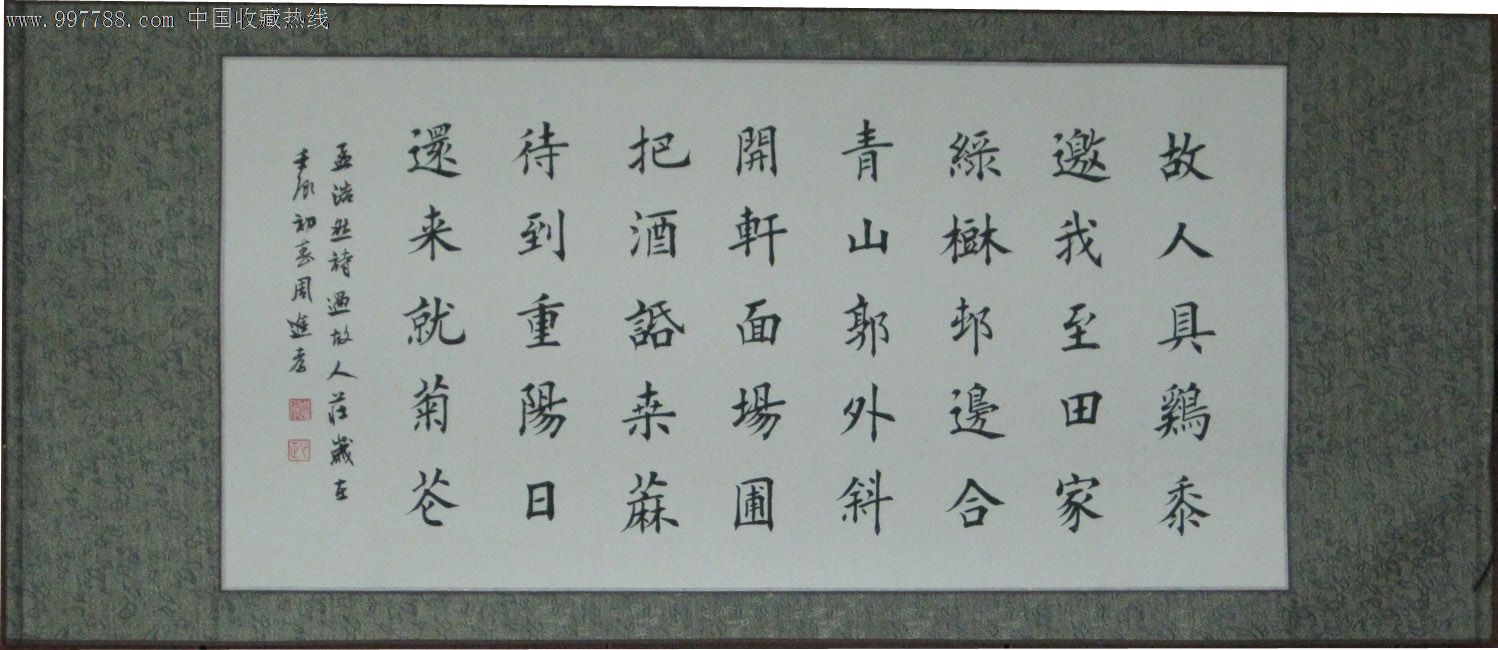 www.997788.com 中国收藏热线
故人具鷄黍
邀我至田家
綠樹邨邊合
青山郭外斜
開軒面場圃
把酒話桒蔴
待到重陽日
還来就菊花
孟浩然詩過故人莊歲在
壬辰初春周進書